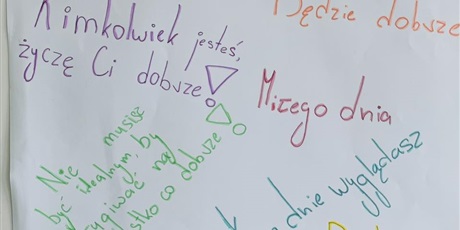 Kimkolwiek jesteś,
życzę Ci dobrze!
Będzie dobrze
Miłego dnia
Nie musisz
być idealnym, by
na
stko co dobrze!
dnie wyglądasz